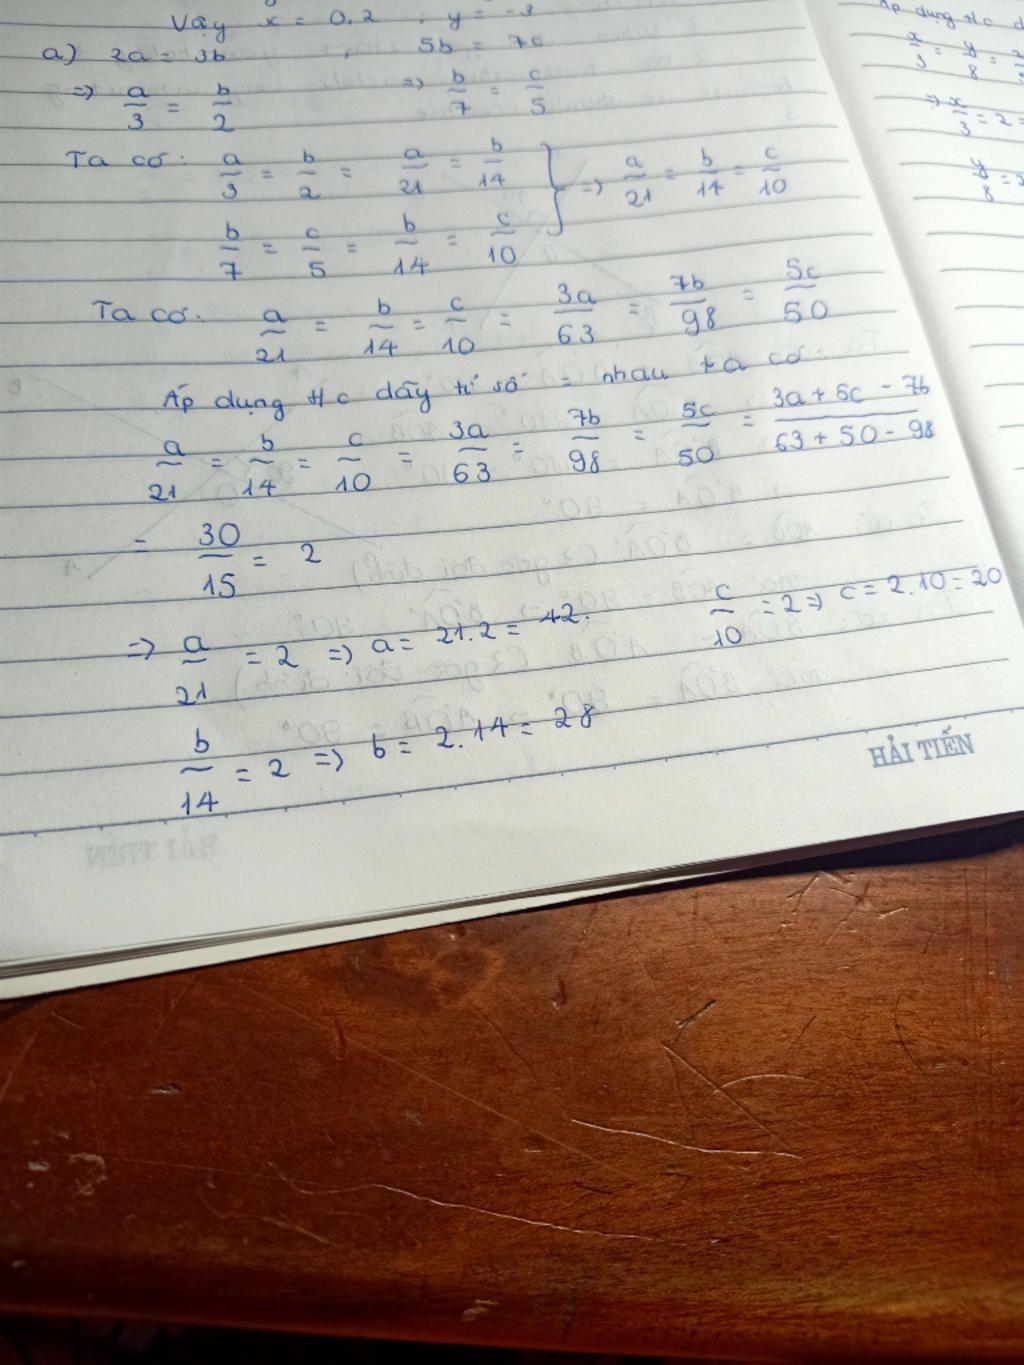 Vậy x = 0,2 ; y = -3
a) 2a = 3b , 5b = 7c
=> a/3 = b/2 => b/7 = c/5
Ta có: a/3 = b/2 = a/21 = b/14
b/7 = c/5 = b/14 = c/10 } => a/21 = b/14 = c/10
Ta có: a/21 = b/14 = c/10 = 3a/63 = 7b/98 = 5c/50
Áp dụng t/c dãy tỉ số = nhau ta có:
a/21 = b/14 = c/10 = 3a/63 = 7b/98 = 5c/50 = 3a + 5c - 7b/63 + 50 - 98
= 30/15 = 2
=> a/21 = 2 => a = 21.2 = 42. c/10 = 2 => c = 2.10 = 20
b/14 = 2 => b = 2.14 = 28
HẢI TIẾN
Áp dụng t/c d
x/3 = y/8 =
=> x/3 = 2 =
y/8 = 2